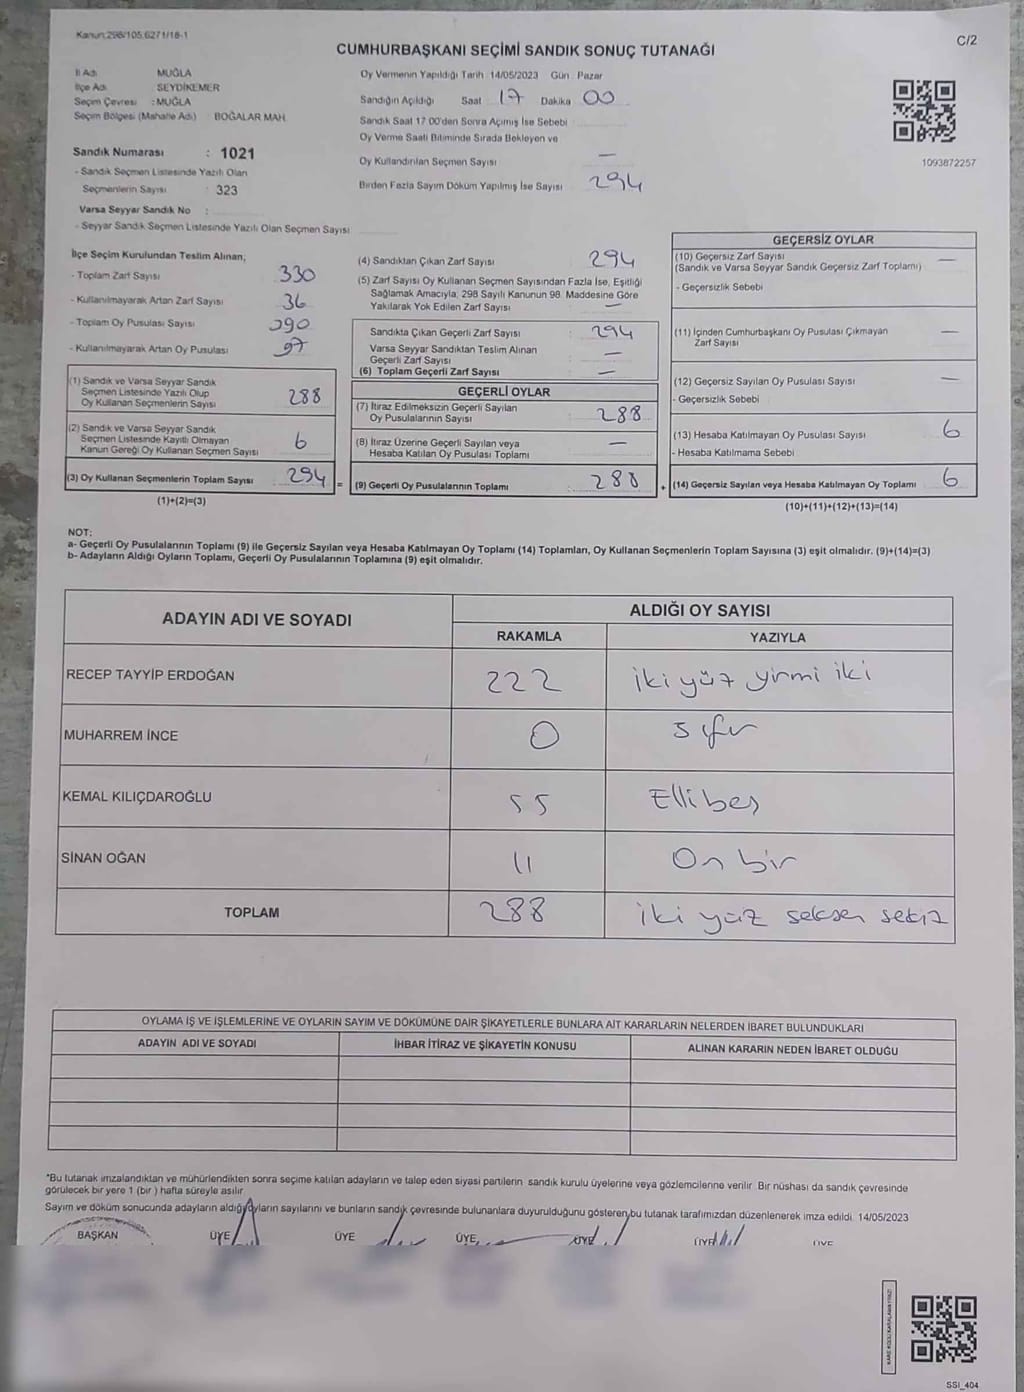 Kanun:298/105,6271/18-1
C/2
CUMHURBAŞKANI SEÇİMİ SANDIK SONUÇ TUTANAĞI
İl Adı MUĞLA
İlçe Adı SEYDİKEMER
Seçim Çevresi : MUĞLA
Seçim Bölgesi (Mahalle Adı) : BOĞALAR MAH.
Sandık Numarası : 1021
- Sandık Seçmen Listesinde Yazılı Olan
Seçmenlerin Sayısı : 323
Varsa Seyyar Sandık No :
- Seyyar Sandık Seçmen Listesinde Yazılı Olan Seçmen Sayısı
Oy Vermenin Yapıldığı Tarih : 14/05/2023 Gün : Pazar
Sandığın Açıldığı Saat 17 Dakika 00
Sandık Saat 17:00'den Sonra Açımış İse Sebebi :
Oy Verme Saati Bitiminde Sırada Bekleyen ve
Oy Kullandırılan Seçmen Sayısı —
Birden Fazla Sayım Döküm Yapılmış İse Sayısı 294
1093872257
İlçe Seçim Kurulundan Teslim Alınan;
- Toplam Zarf Sayısı 330
- Kullanılmayarak Artan Zarf Sayısı 36
- Toplam Oy Pusulası Sayısı 390
- Kullanılmayarak Artan Oy Pusulası 97
(1) Sandık ve Varsa Seyyar Sandık
Seçmen Listesinde Yazılı Olup
Oy Kullanan Seçmenlerin Sayısı 288
(2) Sandık ve Varsa Seyyar Sandık
Seçmen Listesinde Kayıtlı Olmayan
Kanun Gereği Oy Kullanan Seçmen Sayısı 6
(3) Oy Kullanan Seçmenlerin Toplam Sayısı 294 =
(1)+(2)=(3)
(4) Sandıktan Çıkan Zarf Sayısı 294
(5) Zarf Sayısı Oy Kullanan Seçmen Sayısından Fazla İse, Eşitliği
Sağlamak Amacıyla; 298 Sayılı Kanunun 98. Maddesine Göre
Yakılarak Yok Edilen Zarf Sayısı —
Sandıkta Çıkan Geçerli Zarf Sayısı : 294
Varsa Seyyar Sandıktan Teslim Alınan
Geçerli Zarf Sayısı —
(6) Toplam Geçerli Zarf Sayısı —
GEÇERLİ OYLAR
(7) İtiraz Edilmeksizin Geçerli Sayılan
Oy Pusulalarının Sayısı : 288
(8) İtiraz Üzerine Geçerli Sayılan veya
Hesaba Katılan Oy Pusulası Toplamı —
(9) Geçerli Oy Pusulalarının Toplamı : 288 +
GEÇERSİZ OYLAR
(10) Geçersiz Zarf Sayısı —
(Sandık ve Varsa Seyyar Sandık Geçersiz Zarf Toplamı)
- Geçersizlik Sebebi
(11) İçinden Cumhurbaşkanı Oy Pusulası Çıkmayan —
Zarf Sayısı
(12) Geçersiz Sayılan Oy Pusulası Sayısı —
- Geçersizlik Sebebi
(13) Hesaba Katılmayan Oy Pusulası Sayısı 6
- Hesaba Katılmama Sebebi
(14) Geçersiz Sayılan veya Hesaba Katılmayan Oy Toplamı 6
(10)+(11)+(12)+(13)=(14)
NOT:
a- Geçerli Oy Pusulalarının Toplamı (9) ile Geçersiz Sayılan veya Hesaba Katılmayan Oy Toplamı (14) Toplamları, Oy Kullanan Seçmenlerin Toplam Sayısına (3) eşit olmalıdır. (9)+(14)=(3)
b- Adayların Aldığı Oyların Toplamı, Geçerli Oy Pusulalarının Toplamına (9) eşit olmalıdır.
ADAYIN ADI VE SOYADI ALDIĞI OY SAYISI
RAKAMLA YAZIYLA
RECEP TAYYİP ERDOĞAN 222 iki yüz yirmi iki
MUHARREM İNCE 0 Sıfır
KEMAL KILIÇDAROĞLU 55 Elli beş
SİNAN OĞAN 11 On bir
TOPLAM 288 iki yüz seksen sekiz
OYLAMA İŞ VE İŞLEMLERİNE VE OYLARIN SAYIM VE DÖKÜMÜNE DAİR ŞİKAYETLERLE BUNLARA AİT KARARLARIN NELERDEN İBARET BULUNDUKLARI
ADAYIN ADI VE SOYADI İHBAR İTİRAZ VE ŞİKAYETİN KONUSU ALINAN KARARIN NEDEN İBARET OLDUĞU
*Bu tutanak imzalandıktan ve mühürlendikten sonra seçime katılan adayların ve talep eden siyasi partilerin sandık kurulu üyelerine veya gözlemcilerine verilir. Bir nüshası da sandık çevresinde
görülecek bir yere 1 (bir ) hafta süreyle asılır.
Sayım ve döküm sonucunda adayların aldığı oyların sayılarını ve bunların sandık çevresinde bulunanlara duyurulduğunu gösteren bu tutanak tarafımızdan düzenlenerek imza edildi. 14/05/2023
BAŞKAN ÜYE ÜYE ÜYE ÜYE ÜYE ÜYE
SSI_404